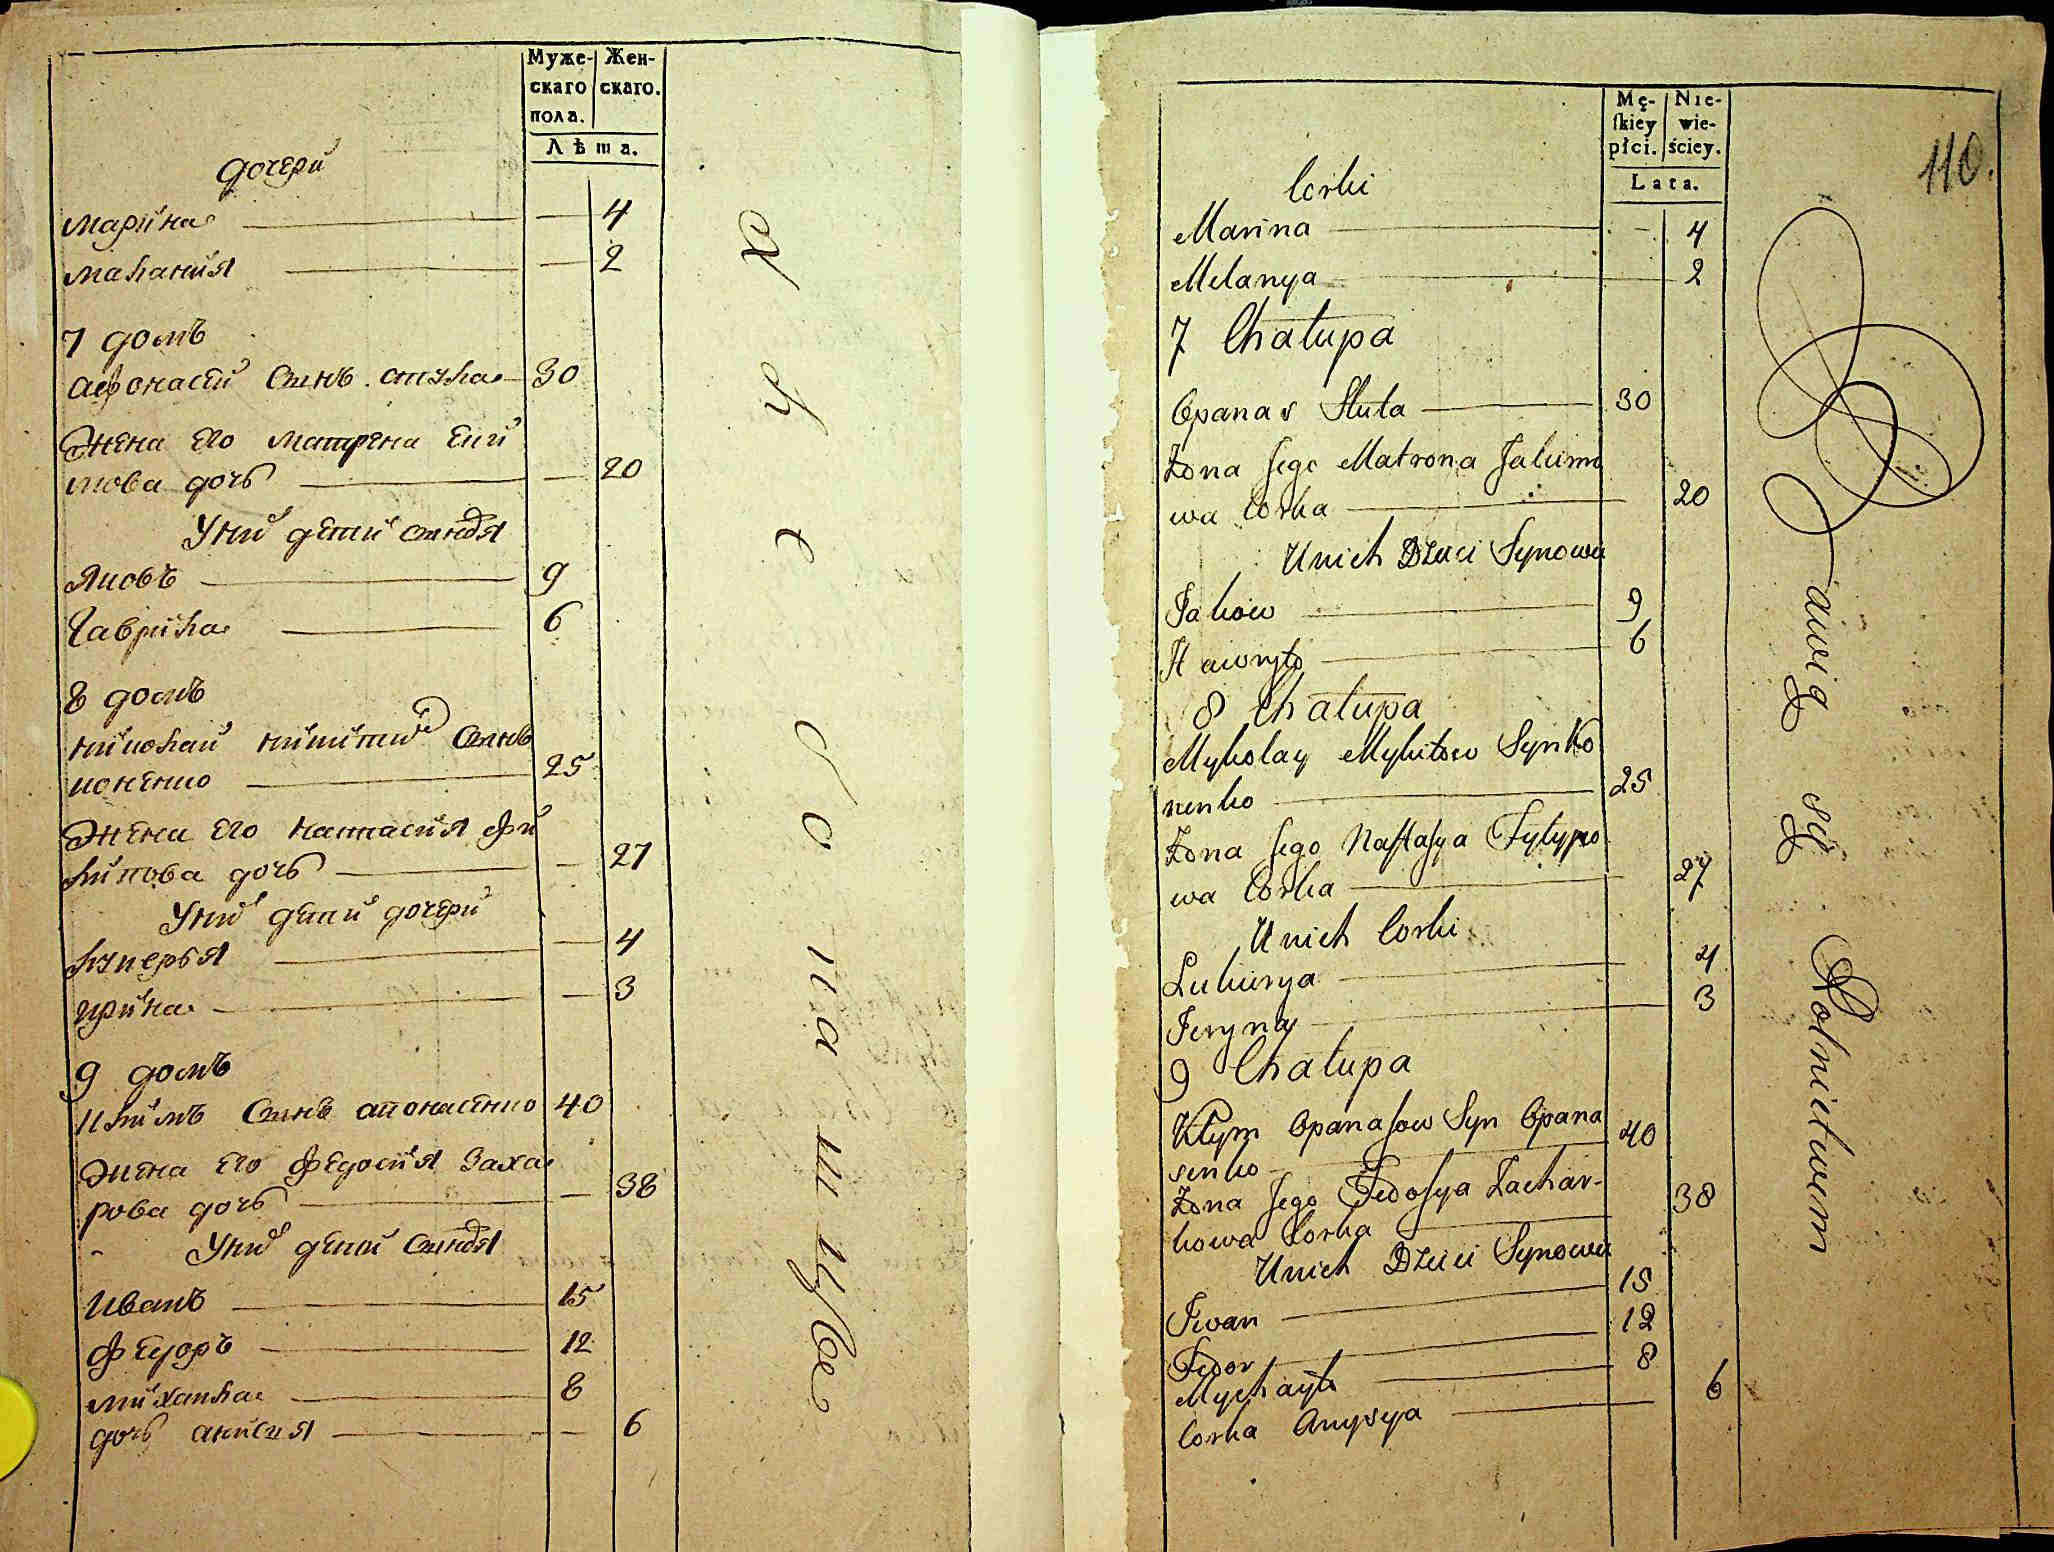 Муже-
скаго
пола.
Жен-
скаго.
Лѣта.
дочери
марина 4
мaлания 2
7 домъ
афонасей Синъ стула 30
Жена его матрена еки
мова дочь 20
Уних дети синов
Яковъ 9
Гаврила 6
8 домъ
николай никитин Синъ
коненко 25
Жена его настасия фи
липова дочь 27
Уних дети дочери
лукерья 4
ирина 3
9 домъ
климъ Синъ апонасенко 40
жена его федосия Заха
рова дочь 38
Уних дети синов
Иванъ 15
федоръ 12
михаила 8
дочь анисия 6
Mę-
ſkiey
płci.
Nie-
wie-
ściey.
Lata.
110.
Corki
Marina 4
Melanya 2
7 Chatupa
Opanas Stuła 30
Zona Jego Matrona Jakimo
wa Corka 20
Unich Dzieci Synowie
Jakow 9
Hawryło 6
8 Chatupa
Mykolay Mykitow Syn Ko
nenko 25
Zona Jego Naſtaſya Fylypo
wa Corka 27
Unich Corki
Lukirya 4
Jeryna 3
9 Chatupa
Kłym Opanaſow Syn Opana
senko 40
Zona Jego Fedoſya Zachar-
kowa Corka 38
Unich Dzieci Synowie
Iwan 15
Fedor 12
Mychayło 8
Corka Anysya 6
Bawią się Rolnictwem